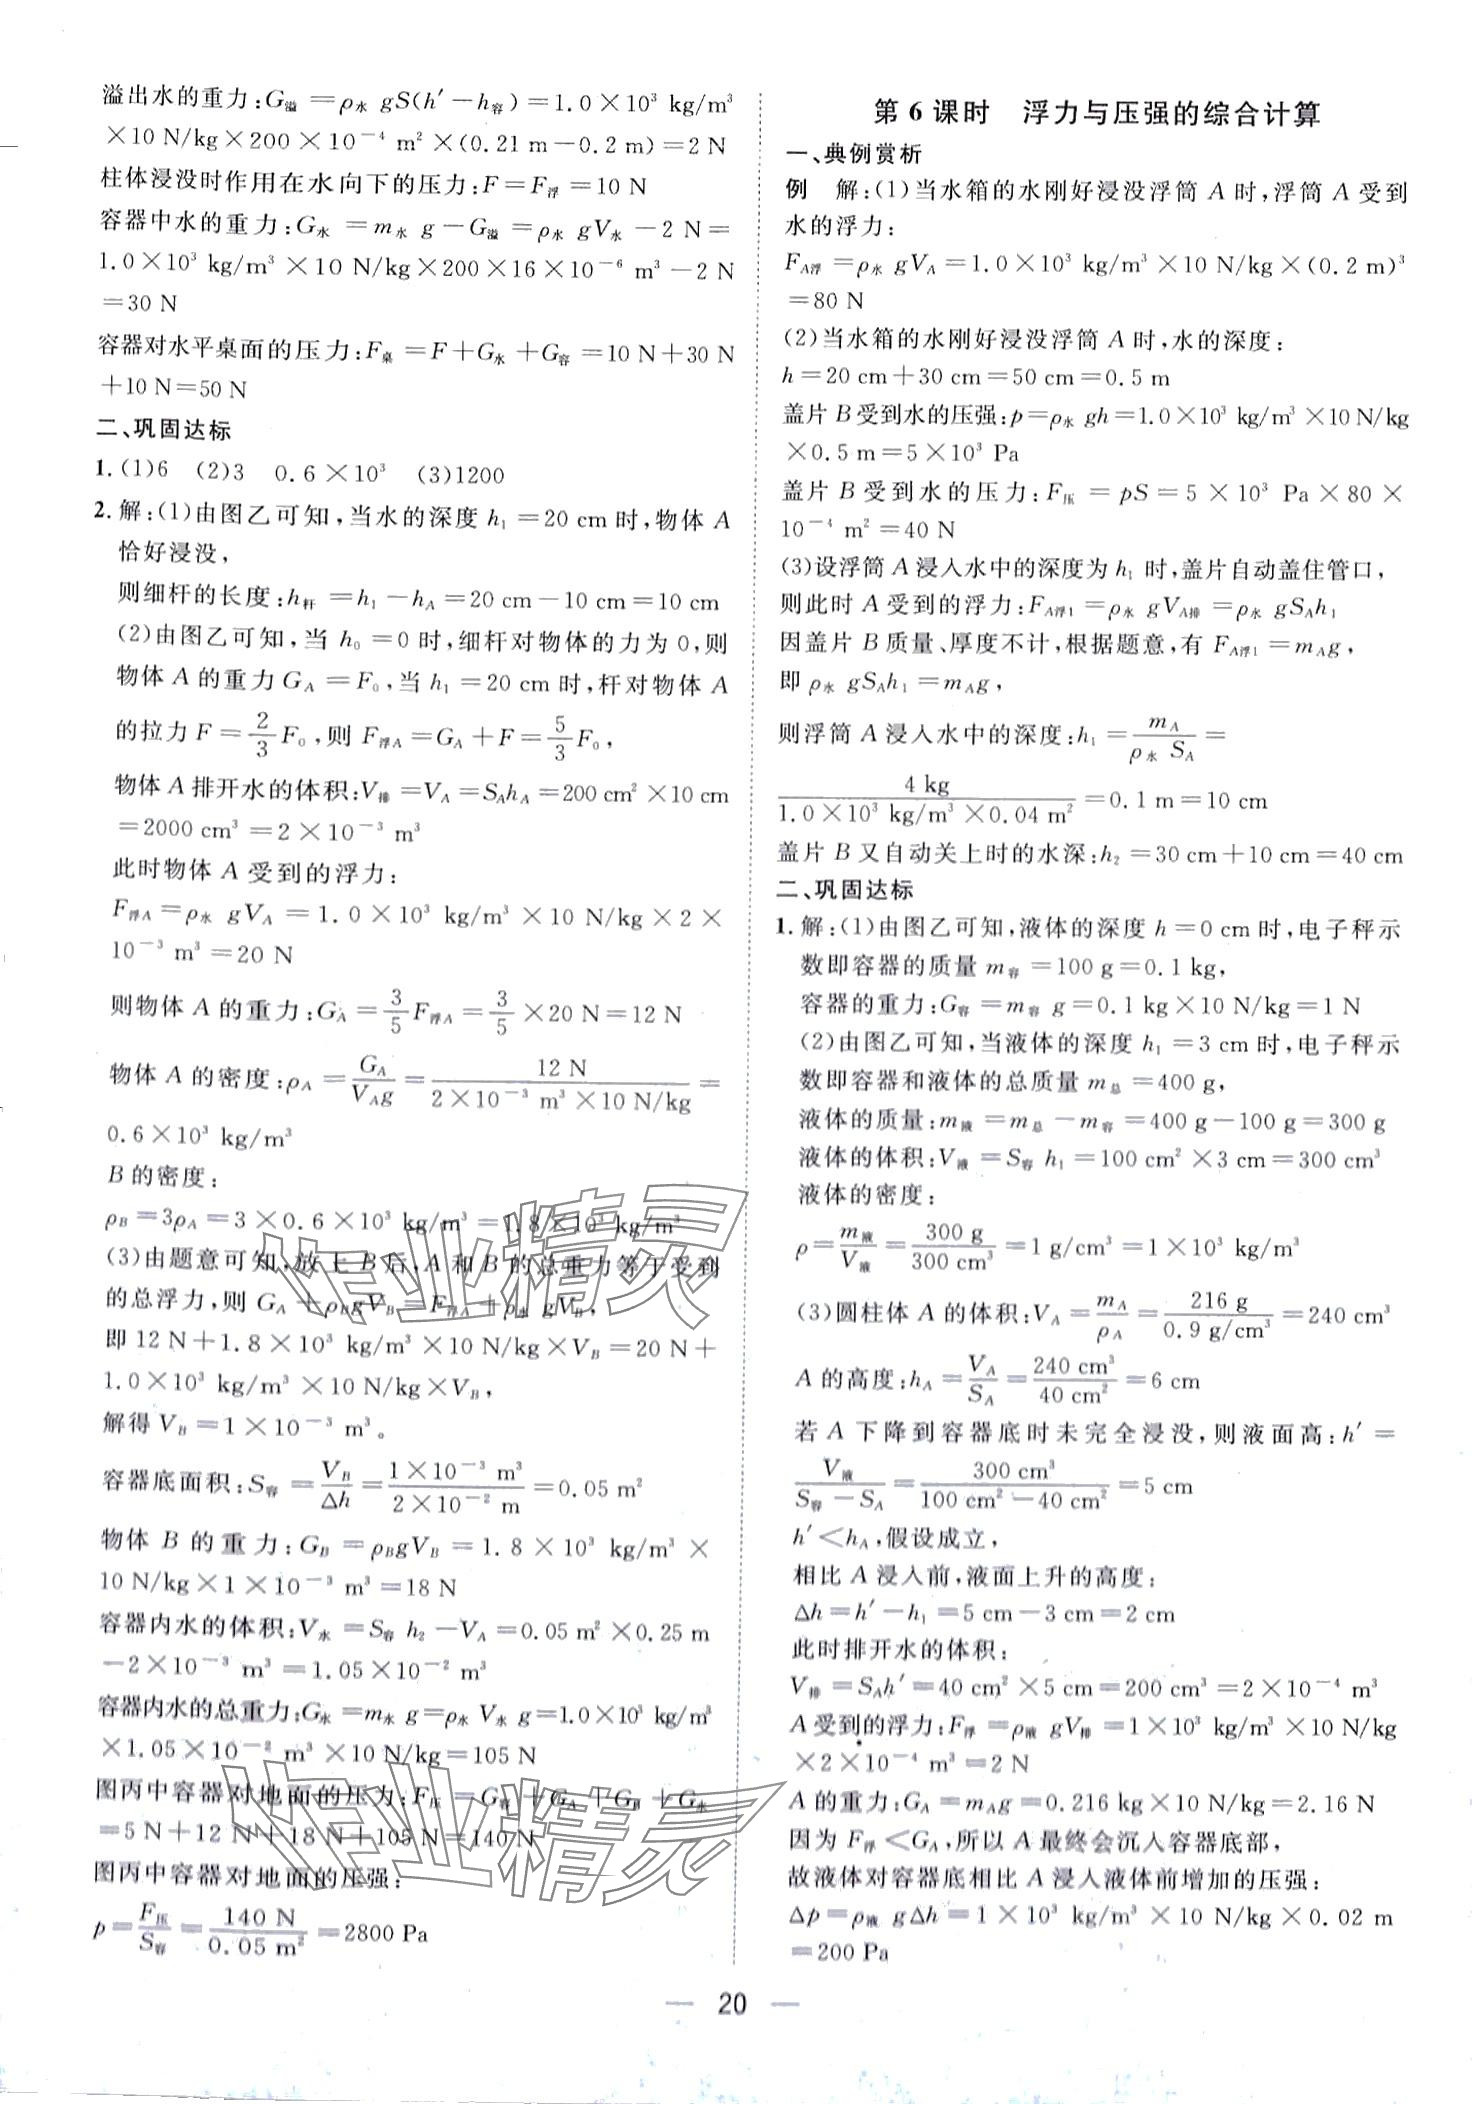 溢出水的重力:G溢=ρ水 gS(h′-h容)=1.0×10³ kg/m³
×10 N/kg×200×10⁻⁴ m²×(0.21 m-0.2 m)=2 N
柱体浸没时作用在水向下的压力:F=F浮=10 N
容器中水的重力:G水=m水 g-G溢=ρ水 gV水-2 N=
1.0×10³ kg/m³×10 N/kg×200×16×10⁻⁶ m³-2 N
=30 N
容器对水平桌面的压力:F桌=F+G水+G容=10 N+30 N
+10 N=50 N
二、巩固达标
1.(1)6 (2)3 0.6×10³ (3)1200
2.解:(1)由图乙可知,当水的深度 h₁=20 cm 时,物体 A
恰好浸没,
则细杆的长度:h杆=h₁-hA=20 cm-10 cm=10 cm
(2)由图乙可知,当 h₀=0 时,细杆对物体的力为 0,则
物体 A 的重力 GA=F₀,当 h₁=20 cm 时,杆对物体 A
的拉力 F=2/3 F₀,则 F浮A=GA+F=5/3 F₀,
物体 A 排开水的体积:V排=VA=SAhA=200 cm²×10 cm
=2000 cm³=2×10⁻³ m³
此时物体 A 受到的浮力:
F浮A=ρ水 gVA=1.0×10³ kg/m³×10 N/kg×2×
10⁻³ m³=20 N
则物体 A 的重力:GA=3/5 F浮A=3/5×20 N=12 N
物体 A 的密度:ρA=GA/VAg=12 N/(2×10⁻³ m³×10 N/kg)=
0.6×10³ kg/m³
B 的密度:
ρB=3ρA=3×0.6×10³ kg/m³=1.8×10³ kg/m³
(3)由题意可知,放上 B 后,A 和 B 的总重力等于受到
的总浮力,则 GA+ρBgVB=F浮A+ρ水 gVB,
即 12 N+1.8×10³ kg/m³×10 N/kg×VB=20 N+
1.0×10³ kg/m³×10 N/kg×VB,
解得 VB=1×10⁻³ m³。
容器底面积:S容=VB/Δh=(1×10⁻³ m³)/(2×10⁻² m)=0.05 m²
物体 B 的重力:GB=ρBgVB=1.8×10³ kg/m³×
10 N/kg×1×10⁻³ m³=18 N
容器内水的体积:V水=S容 h₂-VA=0.05 m²×0.25 m
-2×10⁻³ m³=1.05×10⁻² m³
容器内水的总重力:G水=m水 g=ρ水 V水 g=1.0×10³ kg/m³
×1.05×10⁻² m³×10 N/kg=105 N
图丙中容器对地面的压力:F压=G容+GA+GB+G水
=5 N+12 N+18 N+105 N=140 N
图丙中容器对地面的压强:
p=F压/S容=140 N/0.05 m²=2800 Pa
第 6 课时 浮力与压强的综合计算
一、典例赏析
例 解:(1)当水箱的水刚好浸没浮筒 A 时,浮筒 A 受到
水的浮力:
FA浮=ρ水 gVA=1.0×10³ kg/m³×10 N/kg×(0.2 m)³
=80 N
(2)当水箱的水刚好浸没浮筒 A 时,水的深度:
h=20 cm+30 cm=50 cm=0.5 m
盖片 B 受到水的压强:p=ρ水 gh=1.0×10³ kg/m³×10 N/kg
×0.5 m=5×10³ Pa
盖片 B 受到水的压力:F压=pS=5×10³ Pa×80×
10⁻⁴ m²=40 N
(3)设浮筒 A 浸入水中的深度为 h₁ 时,盖片自动盖住管口,
则此时 A 受到的浮力:FA浮1=ρ水 gVA排=ρ水 gSAh₁
因盖片 B 质量、厚度不计,根据题意,有 FA浮1=mAg,
即 ρ水 gSAh₁=mAg,
则浮筒 A 浸入水中的深度:h₁=mA/(ρ水 SA)=
4 kg/(1.0×10³ kg/m³×0.04 m²)=0.1 m=10 cm
盖片 B 又自动关上时的水深:h₂=30 cm+10 cm=40 cm
二、巩固达标
1.解:(1)由图乙可知,液体的深度 h=0 cm 时,电子秤示
数即容器的质量 m容=100 g=0.1 kg,
容器的重力:G容=m容 g=0.1 kg×10 N/kg=1 N
(2)由图乙可知,当液体的深度 h₁=3 cm 时,电子秤示
数即容器和液体的总质量 m总=400 g,
液体的质量:m液=m总-m容=400 g-100 g=300 g
液体的体积:V液=S容 h₁=100 cm²×3 cm=300 cm³
液体的密度:
ρ=m液/V液=300 g/300 cm³=1 g/cm³=1×10³ kg/m³
(3)圆柱体 A 的体积:VA=mA/ρA=216 g/0.9 g/cm³=240 cm³
A 的高度:hA=VA/SA=240 cm³/40 cm²=6 cm
若 A 下降到容器底时未完全浸没,则液面高:h′=
V液/(S容-SA)=300 cm³/(100 cm²-40 cm²)=5 cm
h′<hA,假设成立,
相比 A 浸入前,液面上升的高度:
Δh=h′-h₁=5 cm-3 cm=2 cm
此时排开水的体积:
V排=SAh′=40 cm²×5 cm=200 cm³=2×10⁻⁴ m³
A 受到的浮力:F浮=ρ液 gV排=1×10³ kg/m³×10 N/kg
×2×10⁻⁴ m³=2 N
A 的重力:GA=mAg=0.216 kg×10 N/kg=2.16 N
因为 F浮<GA,所以 A 最终会沉入容器底部,
故液体对容器底相比 A 浸入液体前增加的压强:
Δp=ρ液 gΔh=1×10³ kg/m³×10 N/kg×0.02 m
=200 Pa
作业精灵
作业精灵
— 20 —